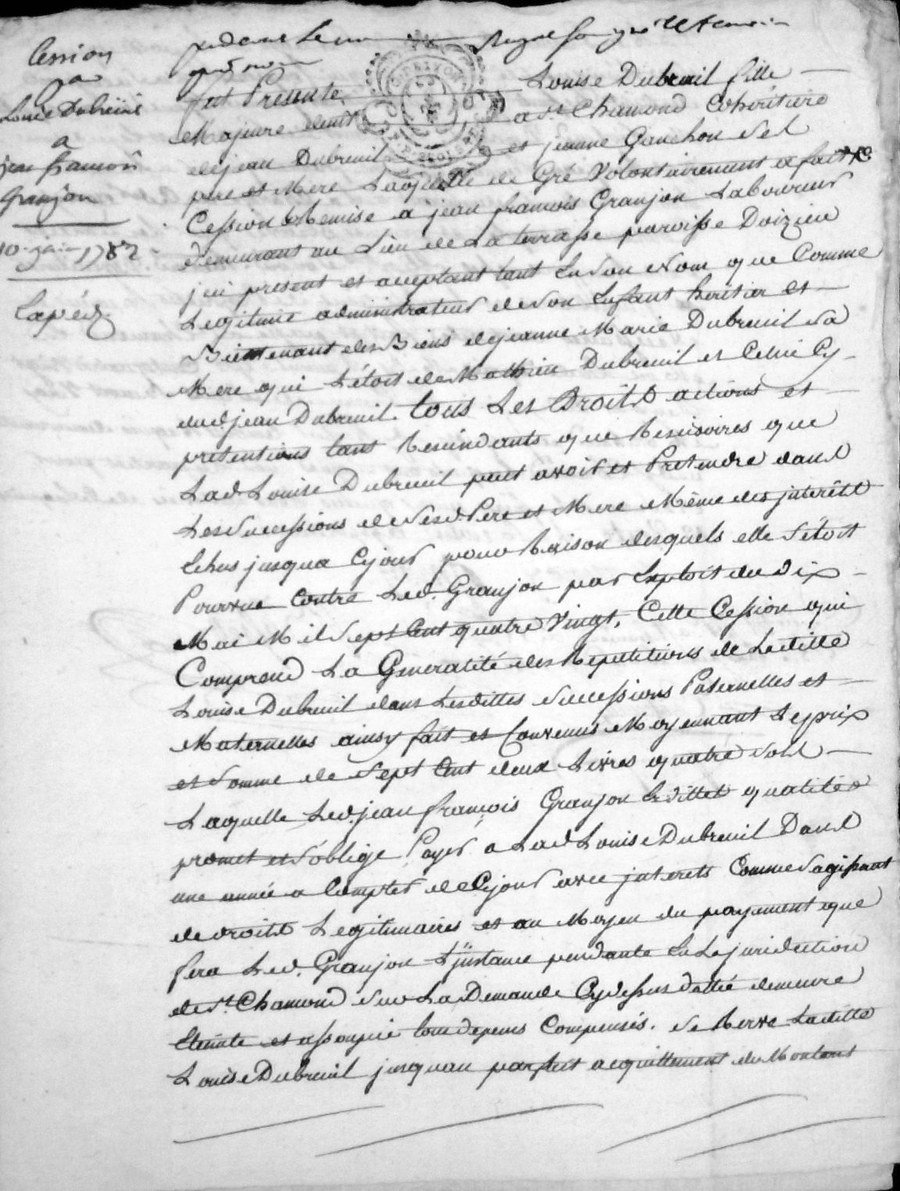 Cession
par
Louise Dubreüil
a
jean francois
Granjon
10 jain 1782
Expéd.
pardevant Le no
Royal
fut Presente Louise Dubreuil fille
Majeure demt a St Chamond Cohéritiere
de jean Dubreuil et jeanne Ganchon Ses
pere et Mere Laquelle de Gré Volontairement a fait
Cession Remise a jean francois Granjon Laboureur
demeurant au Lieu de La terrasse paroisse Doizieu
jci present et acceptant tant En Son Nom que Comme
Legitime administrateur de Son Enfant heritier et
Bientenant des Biens de jeanne Marie Dubreuil Sa
Mere qui L'étoit de Mathieu Dubreuil et Celui Cy
dud jean Dubreuil. tous Les Droits actions et
pretentions tant Rescindants que Rescisoires que
Lad Louise Dubreuil peut avoir et Pretendre dans
Les Successions de Sesd Pere et Mere Même des jnterêts
Echus jusqua Cejour pour Raison desquels elle S'étoit
Pourvue Contre Led. Granjon par Exploit du dix
Mai Mil Sept Cent quatre Vingt. Cette Cession qui
Comprend La Generalité des Repetitions de Laditte
Louise Dubreuil dans Lesdittes Successions Paternelles et
Maternelles ainsy fait et Convenus Moyennant Le prix
et Somme de Sept Cent deux Livres quatre Sols
Laquelle Led. jean françois Granjon Esdittes qualités
promet et S'oblige Payer a Lad Louise Dubreuil Dans
une année a Compter de Cejour avec jnterets Comme Sagissant
de droits Legitimaires et au Moyen du payement que
fera Led. Granjon L'jnstance pendante En La juridiction
de St Chamond Sur La Demande Cydessus dattée demeure
Eteinte et assoupie tous depens Compensés. Se Reserve Laditte
Louise Dubreuil jusquau parfait acquittement du Montant